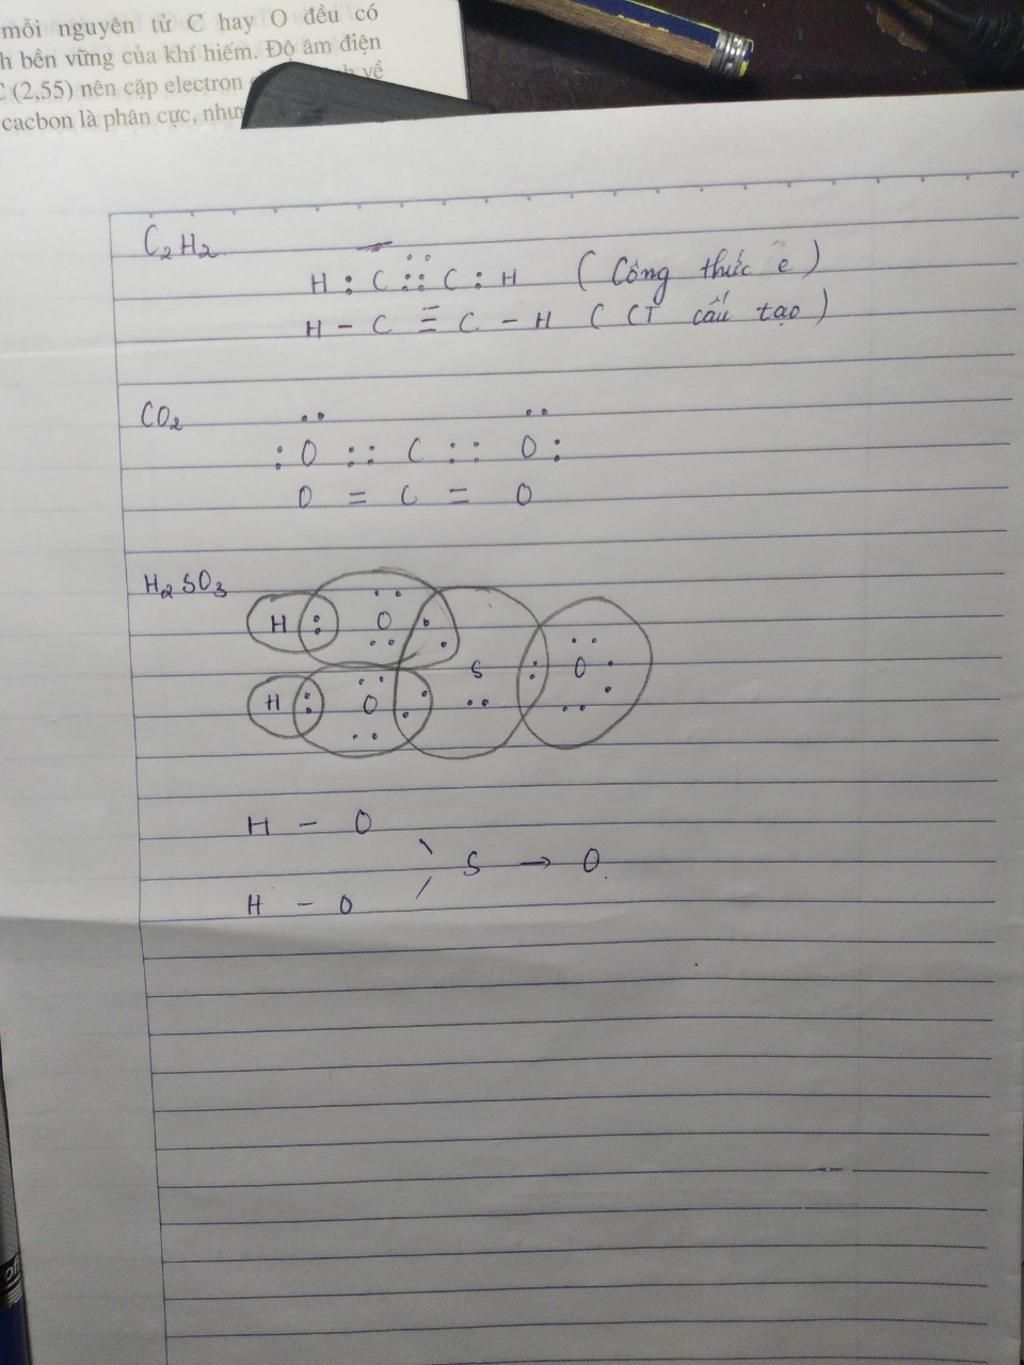 mỗi nguyên tử C hay O đều có
h bền vững của khí hiếm. Độ âm điện
C (2,55) nên cặp electron
về
cacbon là phân cực,
C₂H₂
H : C ⫶⫶ C : H ( Công thức e )
H - C ≡ C - H ( CT cấu tạo )
CO₂
: O :: C :: O :
O = C = O
H₂SO₃
H : O : S : O
H : O :
H - O
\ S → O
H - O /